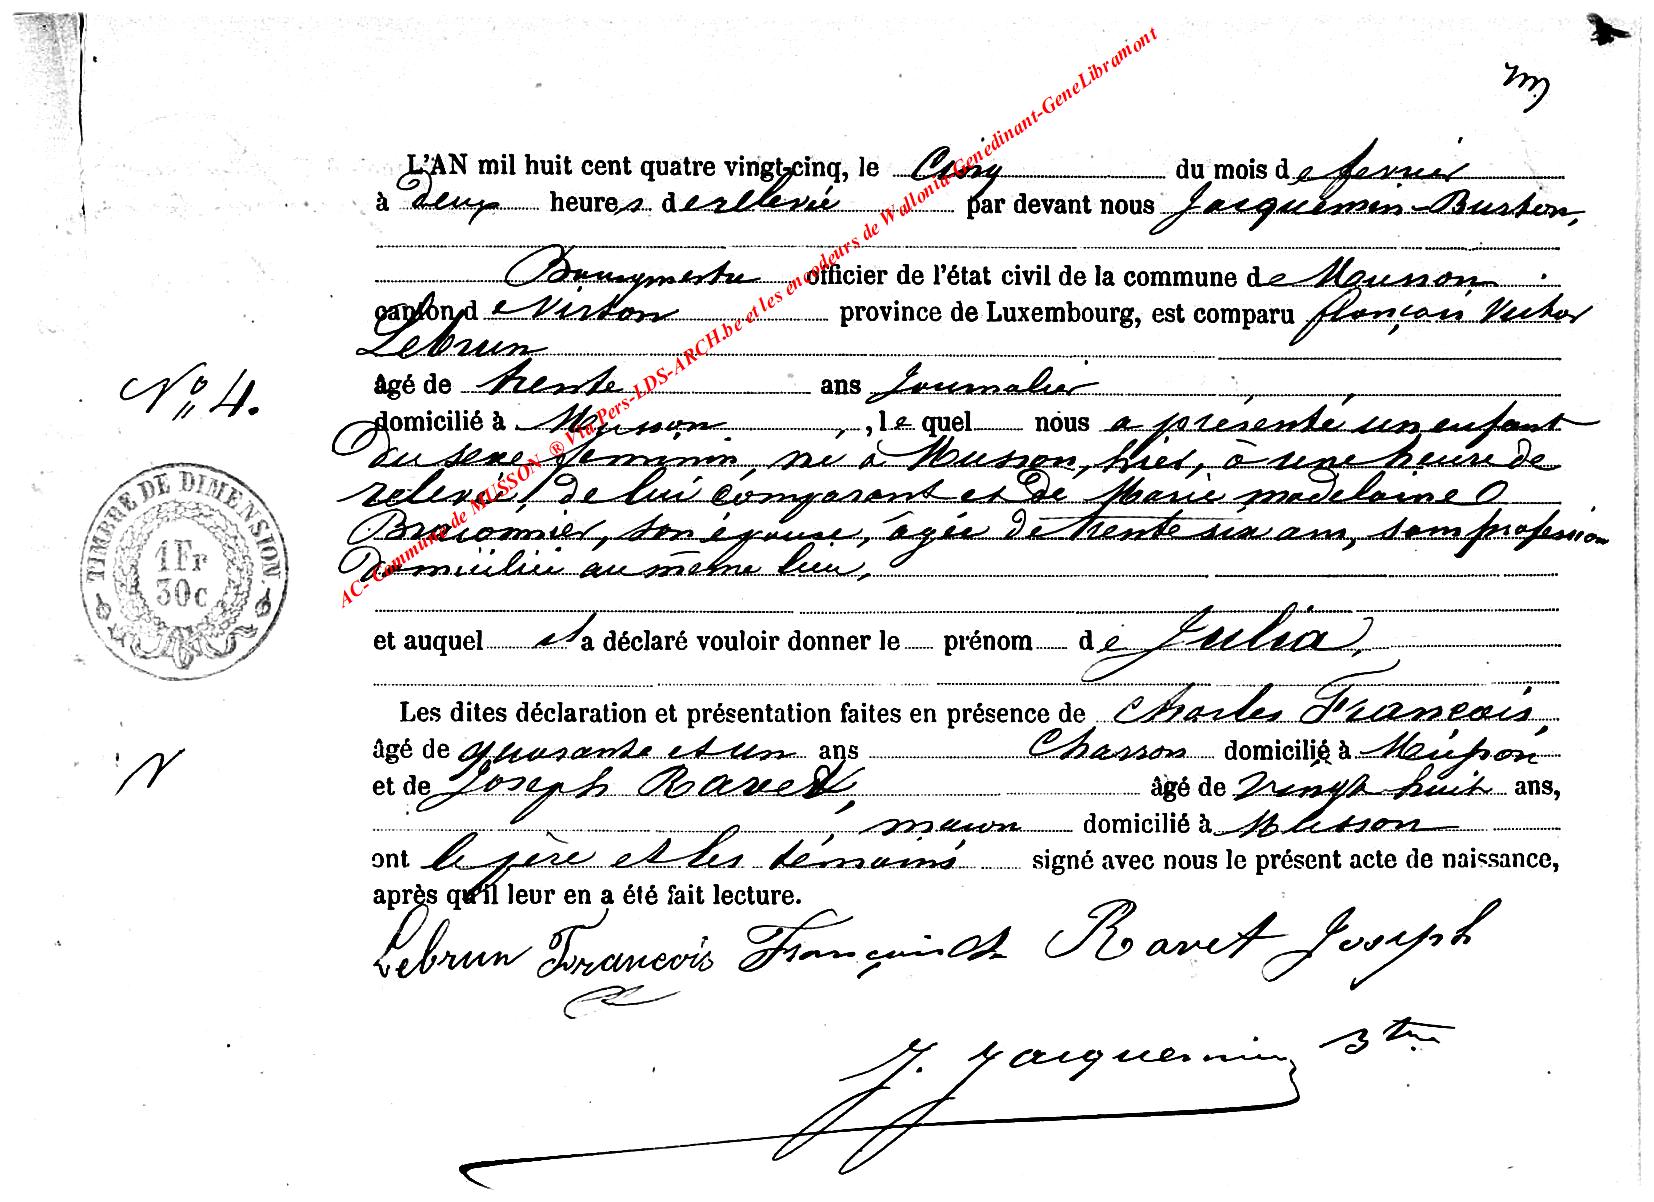 m
L'AN mil huit cent quatre vingt-cinq, le Cinq du mois de fevrier
à deux heures de rellevée par devant nous Jacquemin-Burton,
Bourgmestre officier de l'état civil de la commune de Musson
canton de Virton province de Luxembourg, est comparu françois Victor
Lebrun
âgé de trente ans Journalier
N° 4.
domicilié à Musson, le quel nous a présenté un enfant
du sexe feminin, né à Musson, hier, à une heure de
relevée, de lui comparant et de Marie madelaine
son épouse, âgée de trente six ans, sans profession
domiciliée au même lieu,
TIMBRE DE DIMENSION.
1 Fr
30c
et auquel il a déclaré vouloir donner le prénom de Julia,
Les dites déclaration et présentation faites en présence de Charles François,
âgé de quarante et un ans domicilié à Musson
N
et de Joseph Ravet, âgé de vingt huit ans,
maçon domicilié à Musson
ont le père et les témoins signé avec nous le présent acte de naissance,
après qu'il leur en a été fait lecture.
Lebrun François François ch Ravet Joseph
J. Jacquemin
AC- Commune de MUSSON ® Via Pers-LDS-ARCH.be et les encodeurs de Wallonia-Genedinant-GeneLibramont